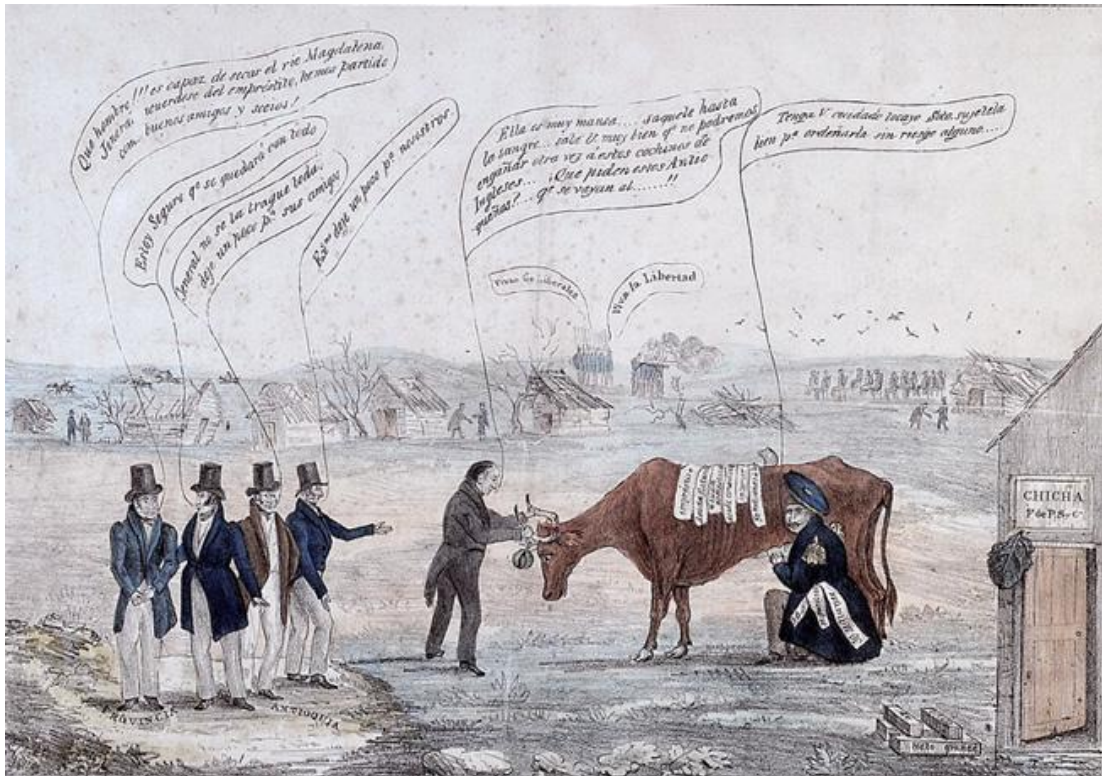 Que hombre!!! es capaz de secar el rio Magdalena.
Jeneral acuerdese del empréstito, hemos partido
com buenos amigos y socios!
Estoy Seguro qe se quedará con todo
Jeneral no se la trague toda,
deje un poco pa sus amigos
deje un poco pa nosotros.
Ella es muy mansa.... saquele hasta
la sangre... sale U. muy bien qe no podremos
engañar otra vez a estos cochinos de
Ingleses.... ¡Que piden estos Antio
queños?... qe se vayan al.......!!
Tenga V cuidado tocayo sujetela
bien pa ordeñarla sin riesgo alguno....
Vivan los Liberales
Viva la Libertad
CHICHA
Pa de P.S. y Ca
PROVINCIA
ANTIOQUIA